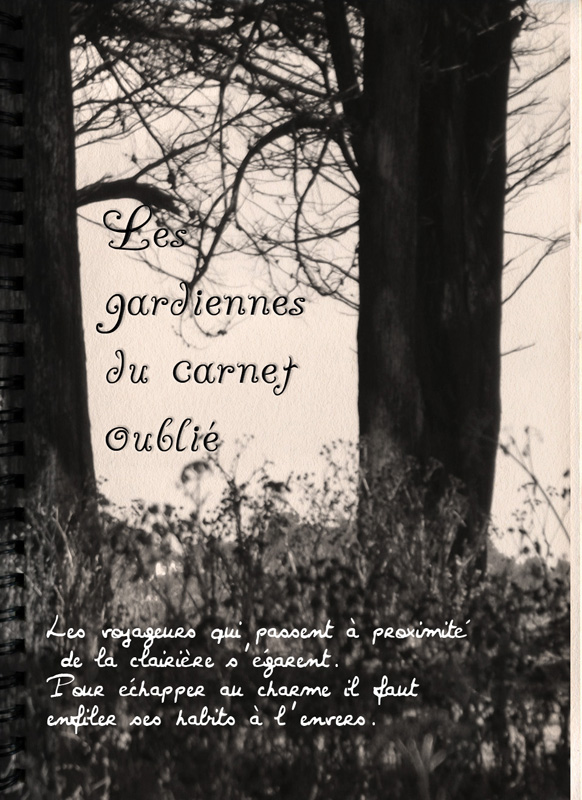 Les
gardiennes
du carnet
oublié
Les voyageurs qui passent à proximité
de la clairière s'égarent.
Pour échapper au charme il faut
enfiler ses habits à l'envers.